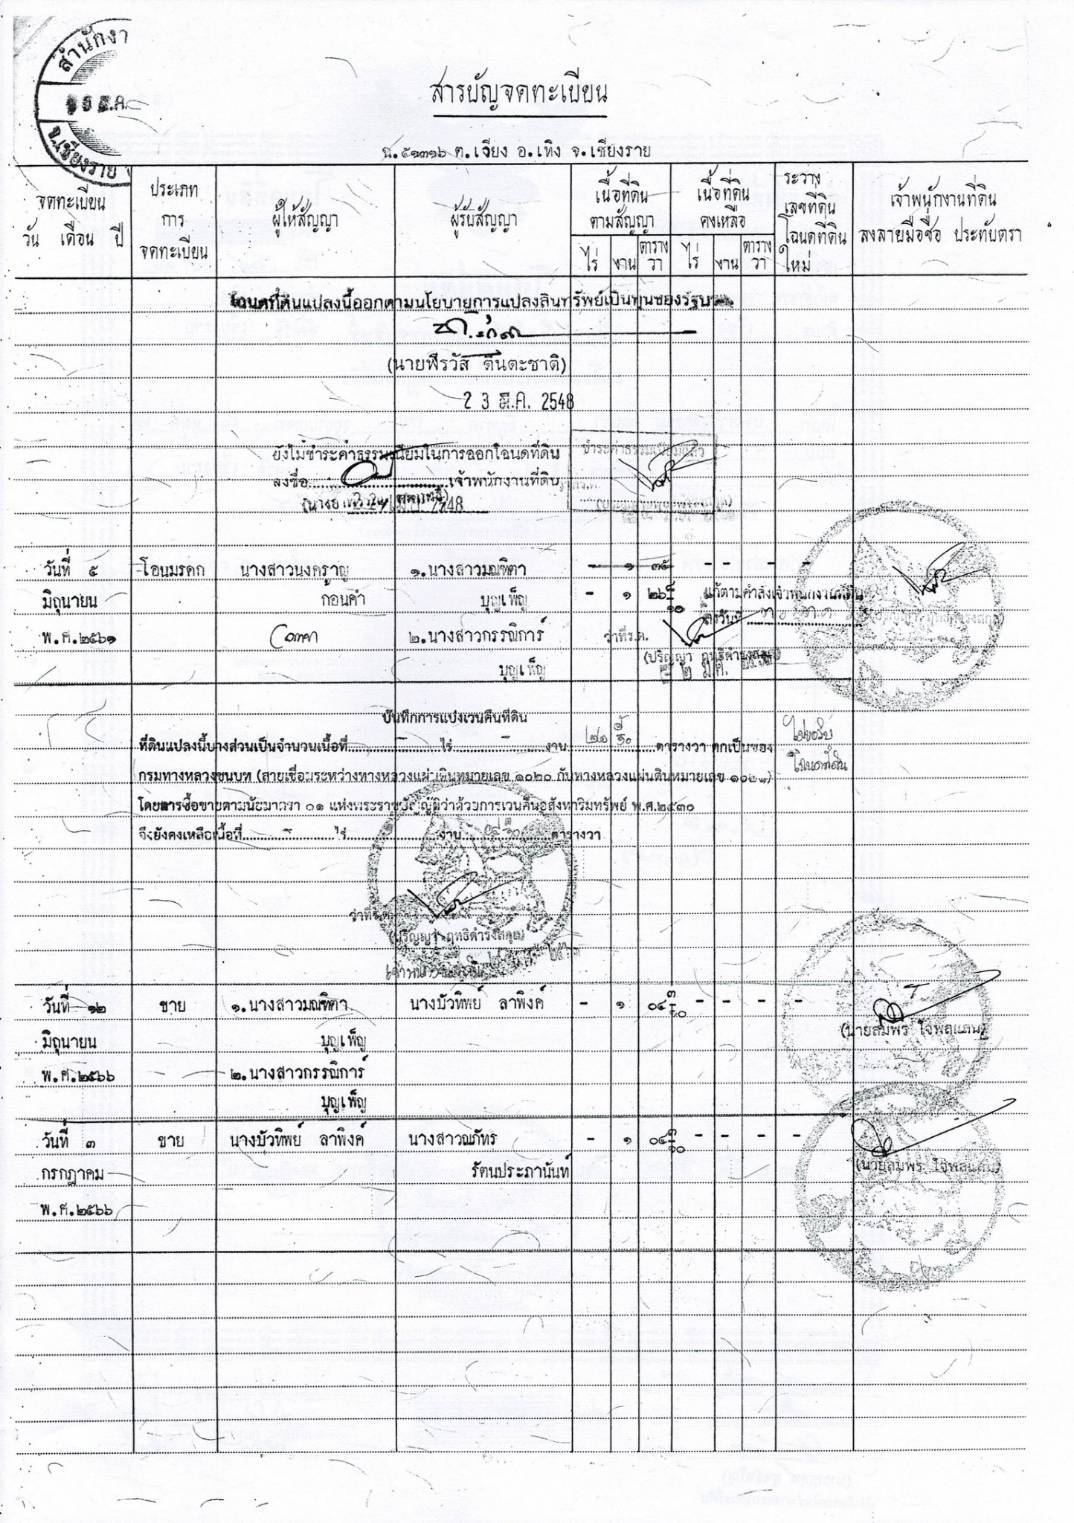 สำนักงา
จ.เชียงราย
สารบัญจดทะเบียน
น.๕๑๓๑๖ ต.เวียง อ.เทิง จ.เชียงราย
จดทะเบียน
วัน เดือน ปี
ประเภท
การ
จดทะเบียน
ผู้ให้สัญญา
ผู้รับสัญญา
เนื้อที่ดิน
ตามสัญญา
ไร่ งาน ตาราง
วา
เนื้อที่ดิน
คงเหลือ
ไร่ งาน ตาราง
วา
ระวาง
เลขที่ดิน
โฉนดที่ดิน
ใหม่
เจ้าพนักงานที่ดิน
ลงลายมือชื่อ ประทับตรา
โฉนดที่ดินแปลงนี้ออกตามนโยบายการแปลงสินทรัพย์เป็นทุนของรัฐบาล
(นายพีรวัส ตินตะชาติ)
2 3 มี.ค. 2548
ยังไม่ชำระค่าธรรมเนียมในการออกโฉนดที่ดิน
ชำระค่าธรรมเนียมแล้ว
ลงชื่อ เจ้าพนักงานที่ดิน
2548
วันที่ ๕ โอนมรดก นางสาวนงคราญ ๑.นางสาวมณฑิตา - ๑ ๓๕ - - - -
มิถุนายน กอนคำ บุญเพ็ญ - ๑ ๒๖ แก้ตามคำสั่งเจ้าพนักงานที่ดิน
พ.ศ.๒๕๖๑ ๒.นางสาวกรรณิการ์ ว่าที่ร.ต.
บุญเพ็ญ
บันทึกการแบ่งเวนคืนที่ดิน
ที่ดินแปลงนี้บางส่วนเป็นจำนวนเนื้อที่ - ไร่ - งาน ตารางวา ตกเป็นของ
กรมทางหลวงชนบท (สายเชื่อมระหว่างทางหลวงแผ่นดินหมายเลข ๑๐๒๐ กับทางหลวงแผ่นดินหมายเลข
โดยการซื้อขายตามนัยมาตรา ๑๑ แห่งพระราชบัญญัติว่าด้วยการเวนคืนอสังหาริมทรัพย์ พ.ศ.๒๕๓๐
จึงยังคงเหลือเนื้อที่ - ไร่ งาน ตารางวา
วันที่ ๑๒ ขาย ๑.นางสาวมณฑิตา นางบัวทิพย์ ลาพิงค์ - ๑ ๐๔ ๓/๑๐ - - - -
มิถุนายน บุญเพ็ญ
พ.ศ.๒๕๖๖ ๒.นางสาวกรรณิการ์
บุญเพ็ญ
(นายสมพร ใจพลแสน)
วันที่ ๓ ขาย นางบัวทิพย์ ลาพิงค์ นางสาวณภัทร - ๑ ๐๔ ๓/๑๐ - - - -
กรกฎาคม รัตนประภานันท์
(นายสมพร ใจพลแสน)
พ.ศ.๒๕๖๖